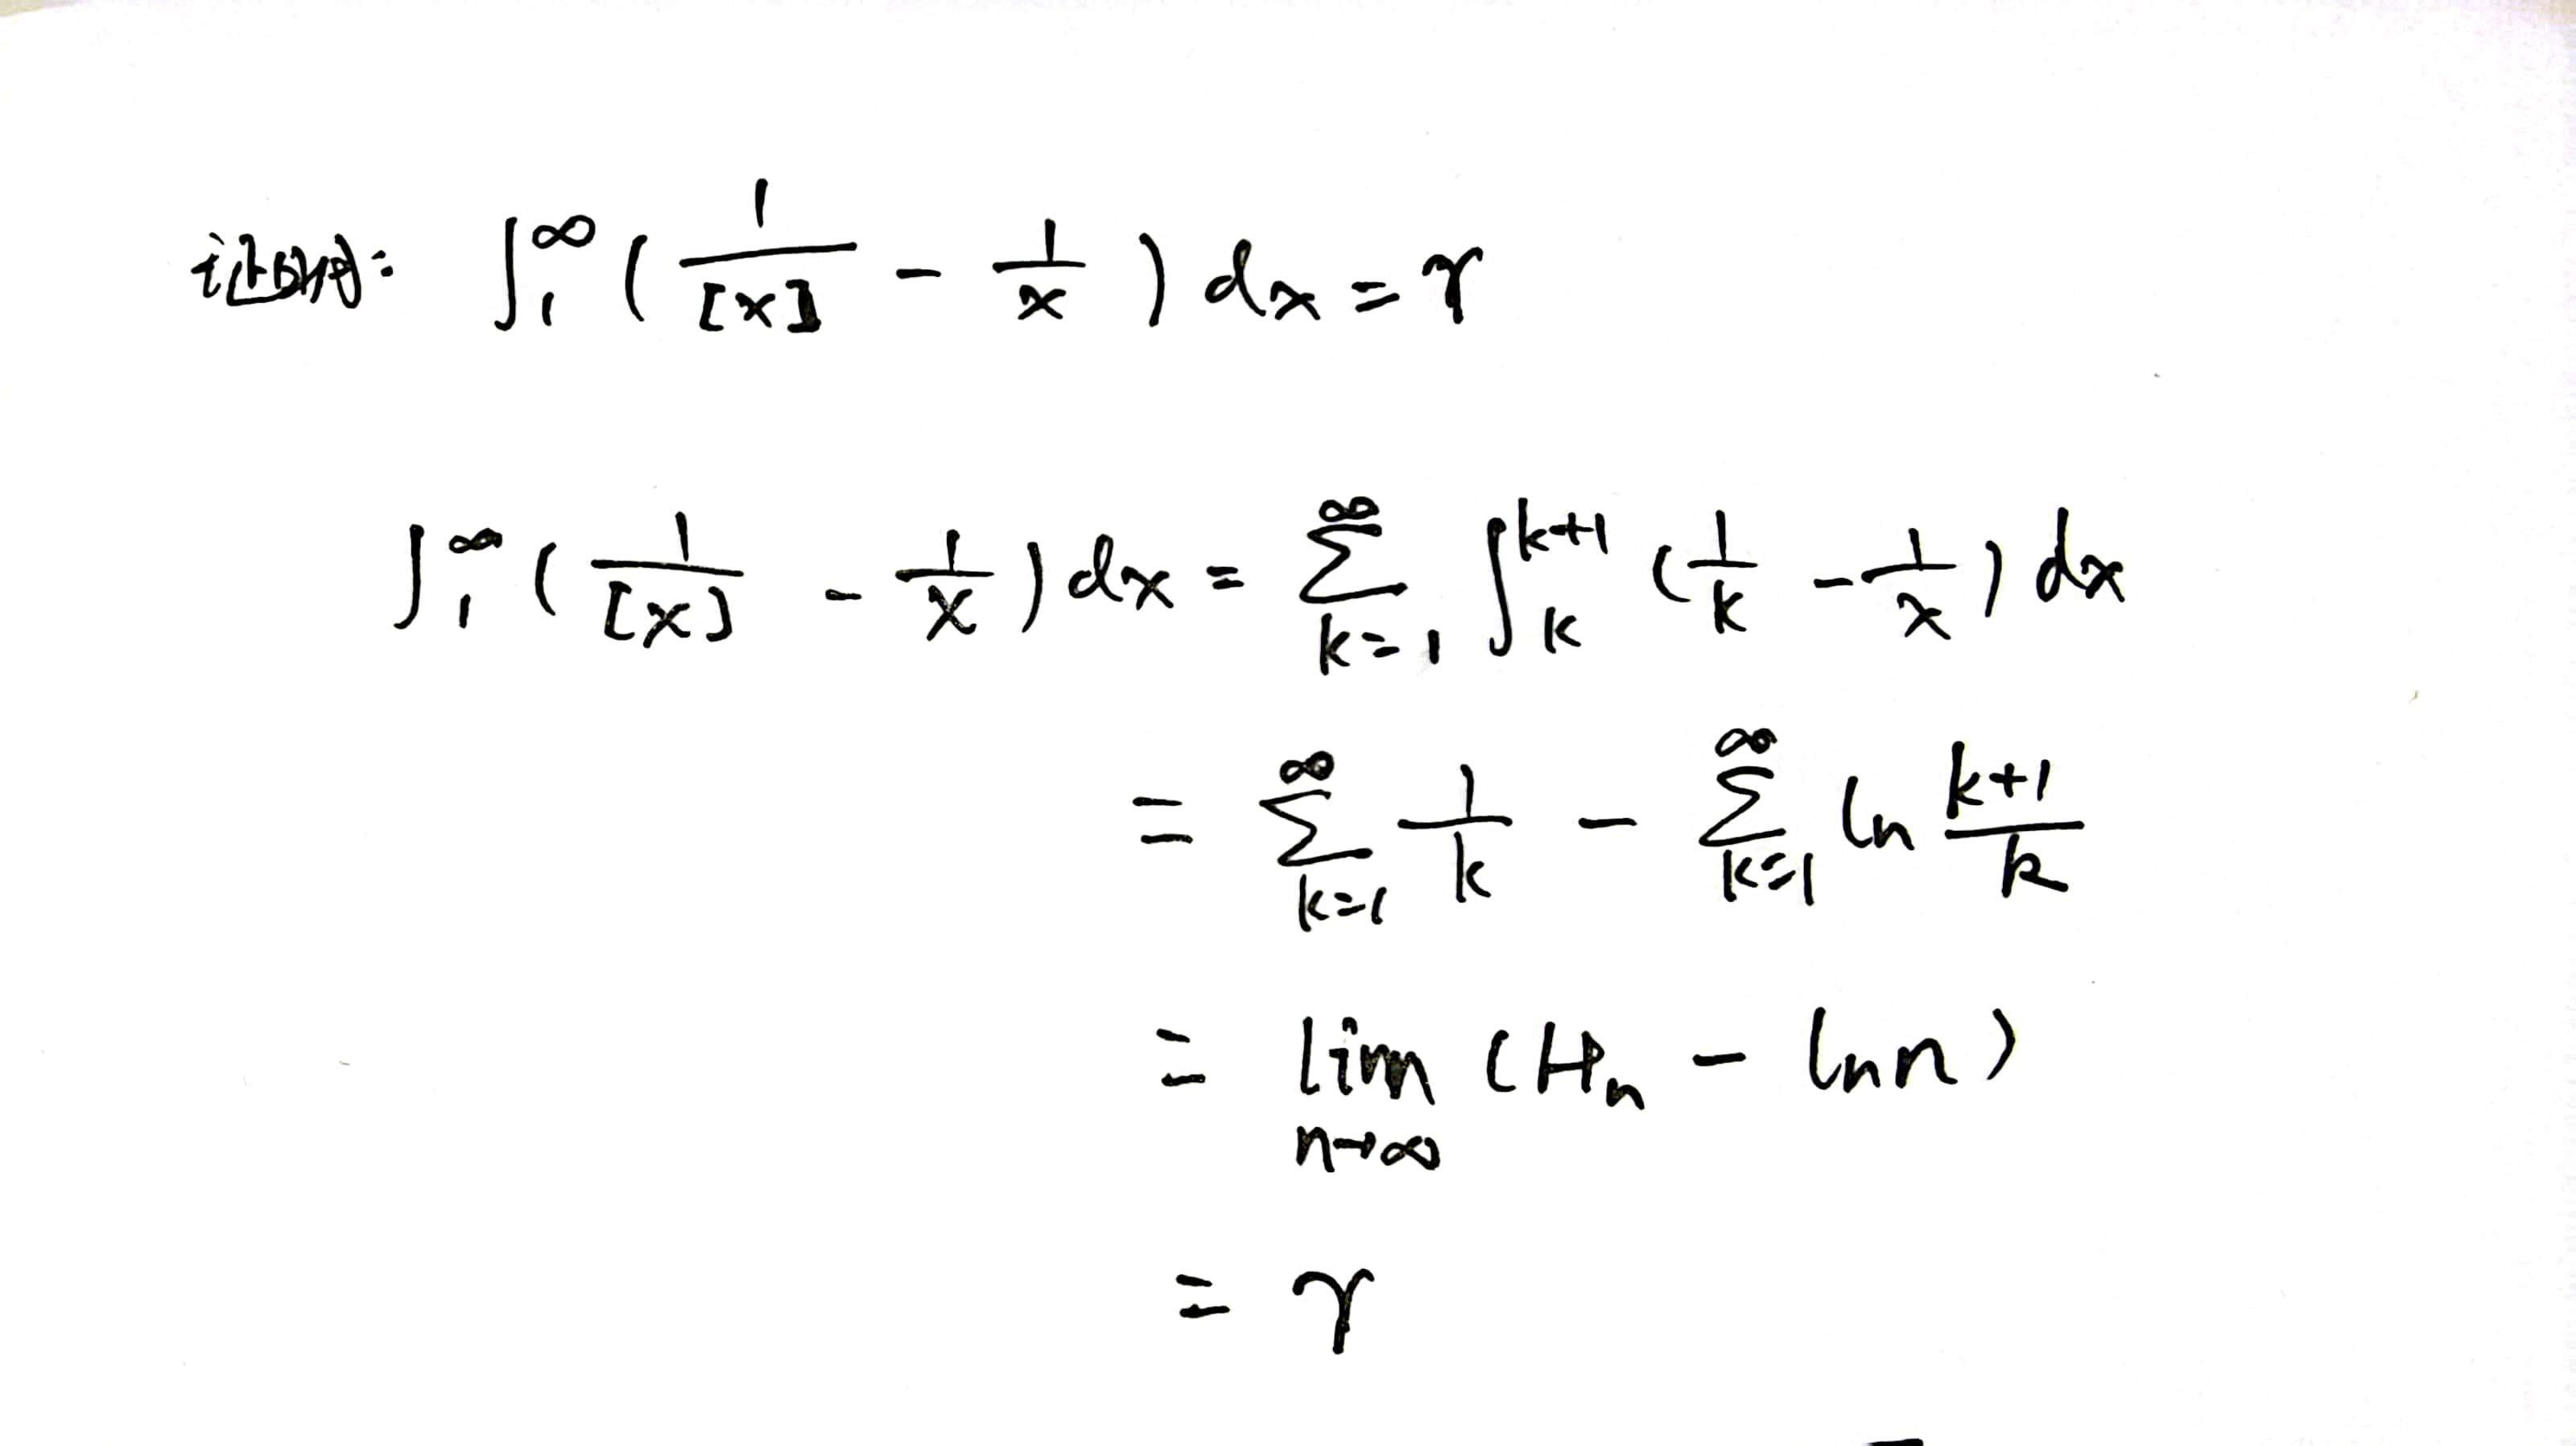 证明: ∫₁^∞ ( 1/[x] - 1/x ) dx = γ
∫₁^∞ ( 1/[x] - 1/x ) dx = ∑_{k=1}^∞ ∫_k^{k+1} ( 1/k - 1/x ) dx
= ∑_{k=1}^∞ 1/k - ∑_{k=1}^∞ ln (k+1)/k
= lim_{n→∞} (H_n - ln n)
= γ